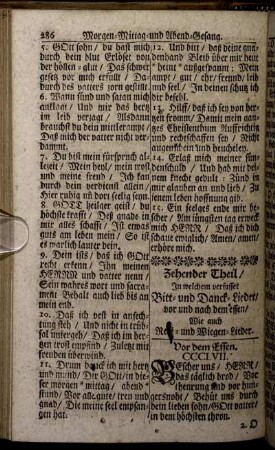 286 Morgen-Mittag-und Abend-Gesang.
5. GOtt sohn / du hast mich
durch dein blut Erlöset von
der höllen-glut / Das schwer
gesetz vor mich erfüllt / Da-
durch des vatters zorn gestillt.
6. Wann sünd und satan mich
anklagt / Und mir das hertz
im leib verzagt / Alsdann
brauchst du dein mittleramt /
Daß mich der vatter nicht ver-
dammt.
7. Du bist mein fürsprach al-
lezeit / Mein heyl / mein trost
und meine freud / Ich kan
durch dein verdienst allein /
Hier ruhig und dort selig seyn.
8. GOTT heilger geist / du
höchste krafft / Deß gnade in
mir alles schafft / Ist etwas
guts am leben mein / So ist
es warlich lauter dein.
9. Dein ists / daß ich GOtt
recht erkenn / Ihn meinen
HERRN und vatter nenn /
Sein wahres wort und sacra-
ment Behalt auch lieb bis an
mein end.
10. Daß ich vest in anfech-
tung steh / Und nicht in trüb-
sal untergeh / Daß ich im her-
tzen trost empfind / Zuletzt mit
freuden überwind.
11. Drum danck ich mit hertz
und mund / Dir GOtt / in die-
ser morgen- mittag / abend
stund / Vor alle güte / treu und
gnad / Die meine seel empfan-
gen hat.
12. Und bitt / daß deine gna-
denhand Bleib über mir heut
ausgespannt: Mein
ampt / gut / ehr / freund / leib
und seel / In deinen schutz ich
dir befehl.
13. Hilff / daß ich sey von her-
tzen fromm / Damit mein gan-
tzes Christenthum Auffrichtig
und rechtschaffen sey / Nicht
augenschein und heucheley.
14. Erlaß mich meiner sün-
denschuld / Und hab mit dei-
nem knecht gedult: Zünd in
mir glauben an und lieb / Zu
jenem leben hoffnung gib.
15. Ein selges ende mir be-
scher / Am jüngsten tag erweck
mich HERR / Daß ich dich
schaue ewiglich / Amen / amen /
erhöre mich.
Zehender Theil /
In welchem verfasset
Bitt- und Danck-Lieder /
vor und nach dem essen /
Wie auch
und Wiegen-Lieder.
Vor dem Essen.
CCCLVII.
BEscher uns / HERR /
das täglich brod / Vor
theurung und vor hun-
gersnoht / Behüt uns durch
dein lieben sohn / GOtt vatter
in dem höchsten thron.
2. O